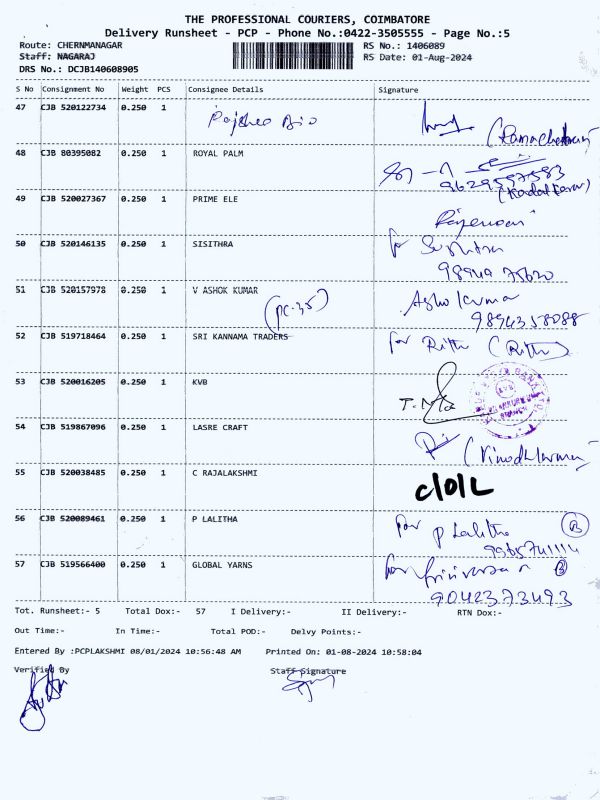 THE PROFESSIONAL COURIERS, COIMBATORE
Delivery Runsheet - PCP - Phone No.:0422-3505555 - Page No.:5
Route: CHERNMANAGAR RS No.: 1406089
Staff: NAGARAJ RS Date: 01-Aug-2024
DRS No.: DCJB140608905
S No Consignment No Weight PCS Consignee Details Signature
47 CJB 520122734 0.250 1
48 CJB 80395082 0.250 1 ROYAL PALM
9629557583
49 CJB 520027367 0.250 1 PRIME ELE
50 CJB 520146135 0.250 1 SISITHRA for
98949 75620
51 CJB 520157978 0.250 1 V ASHOK KUMAR Ashokkuma
(PC-35) 9894358088
52 CJB 519718464 0.250 1 SRI KANNAMA TRADERS for Rithu (Rithu)
53 CJB 520016205 0.250 1 KVB
54 CJB 519867096 0.250 1 LASRE CRAFT
55 CJB 520038485 0.250 1 C RAJALAKSHMI c/o/L
56 CJB 520089461 0.250 1 P LALITHA for P Lalitha
9965741114
57 CJB 519566400 0.250 1 GLOBAL YARNS for
9042373493
Tot. Runsheet:- 5 Total Dox:- 57 I Delivery:- II Delivery:- RTN Dox:-
Out Time:- In Time:- Total POD:- Delvy Points:-
Entered By :PCPLAKSHMI 08/01/2024 10:56:48 AM Printed On: 01-08-2024 10:58:04
Verified By Staff Signature